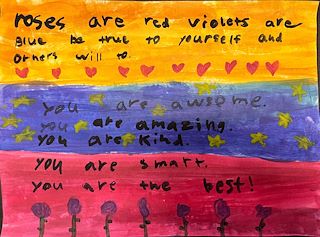 roses are red violets are
blue be true to yourself and
others will to.
you are awsome.
you are amazing.
you are kind.
you are smart.
you are the best!